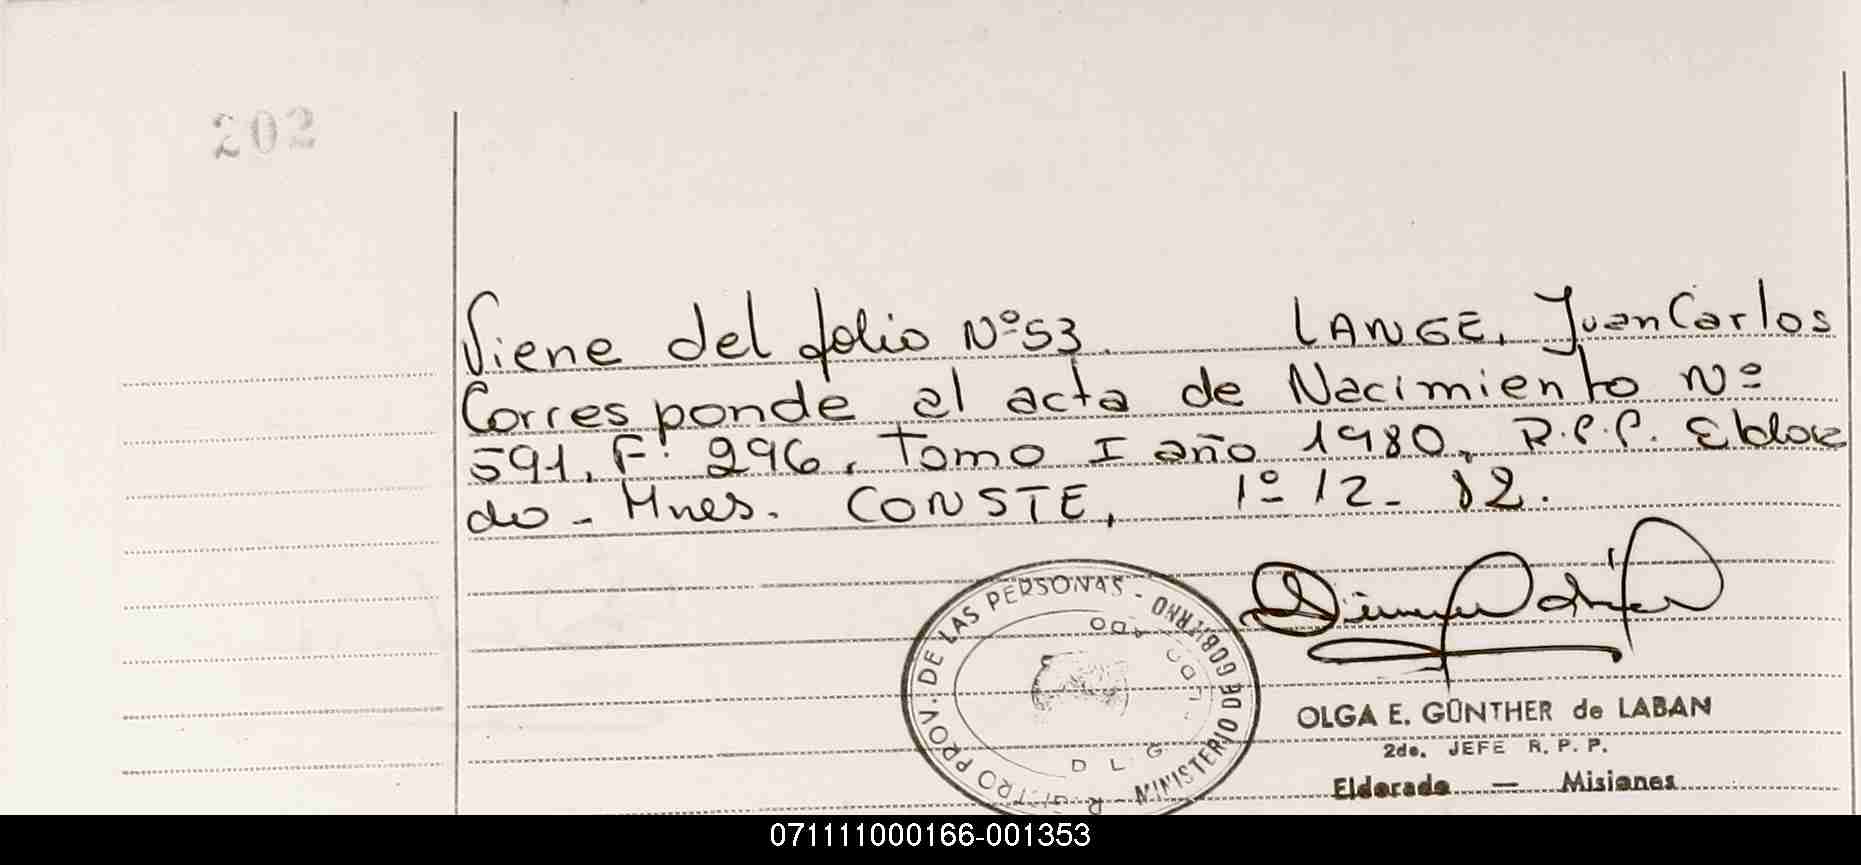 202
Viene del folio Nº 53. LANGE, Juan Carlos
Corresponde al acta de Nacimiento Nº
591, Fº 296, Tomo I año 1980, R.P.P. Eldora
do - Mnes. CONSTE, 1º 12- 82.
REGISTRO PROV. DE LAS PERSONAS - MINISTERIO DE GOBIERNO
ELDORADO
D L G
OLGA E. GÜNTHER de LABAN
2do. JEFE R. P. P.
Eldorado — Misiones
071111000166-001353